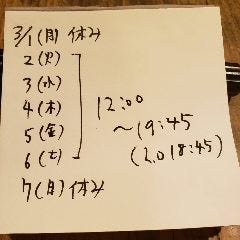 3/1(月)休み
2(火)
3(水)
4(木)
5(金)
6(土)
12:00
～19:45
(L.O 18:45)
7(日)休み